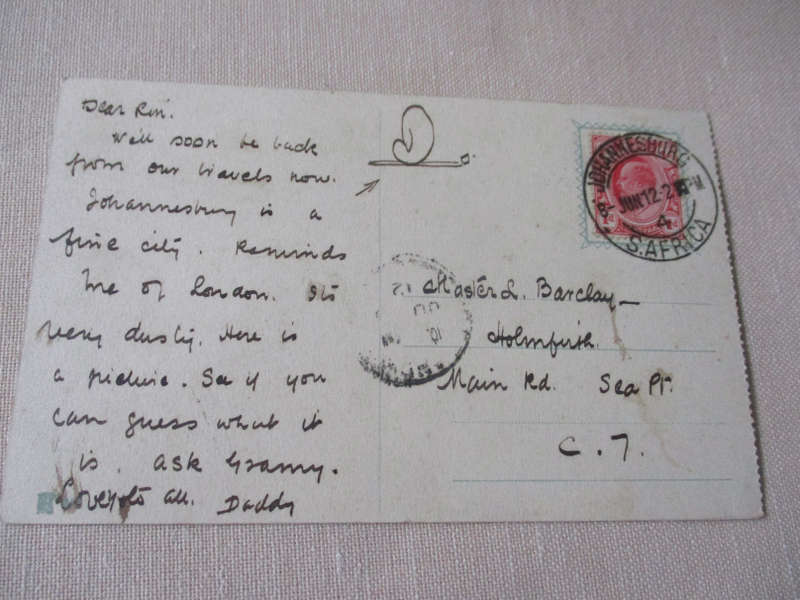 Dear Ron.
We'll soon be back
from our travels now.
Johannesburg is a
fine city. Reminds
me of London. Its
very dusty. Here is
a picture. See if you
can guess what it
is. ask Granny.
Love to all. Daddy
JOHANNESBURG
8 JUN 12-2 PM
4
S. AFRICA
Master L. Barclay
Holmfirth
Main Rd. Sea Pt.
C. T.